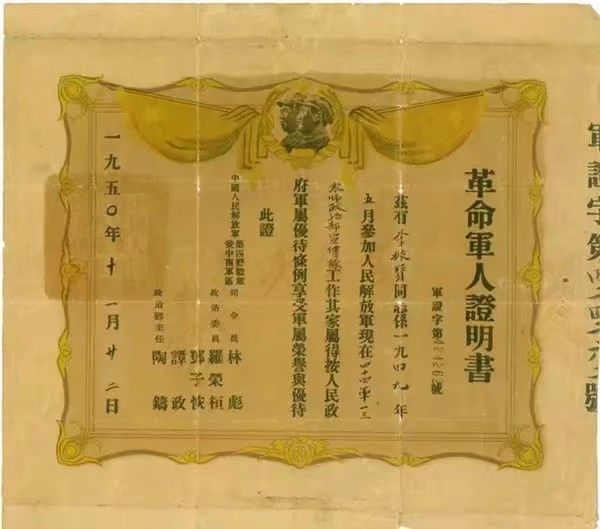 軍證字第
革命軍人證明書
軍證字第 號
茲有 同志係一九四九年
五月參加人民解放軍現在四十四軍一三
政治部宣傳 工作其家屬得按人民政
府軍屬優待條例享受軍屬榮譽與優待
此證
中國人民解放軍第四野戰軍
暨中南軍區
司令員 林彪
政治委員 羅榮桓
鄧子恢
譚政
政治部主任 陶鑄
一九五〇年十一月廿二日